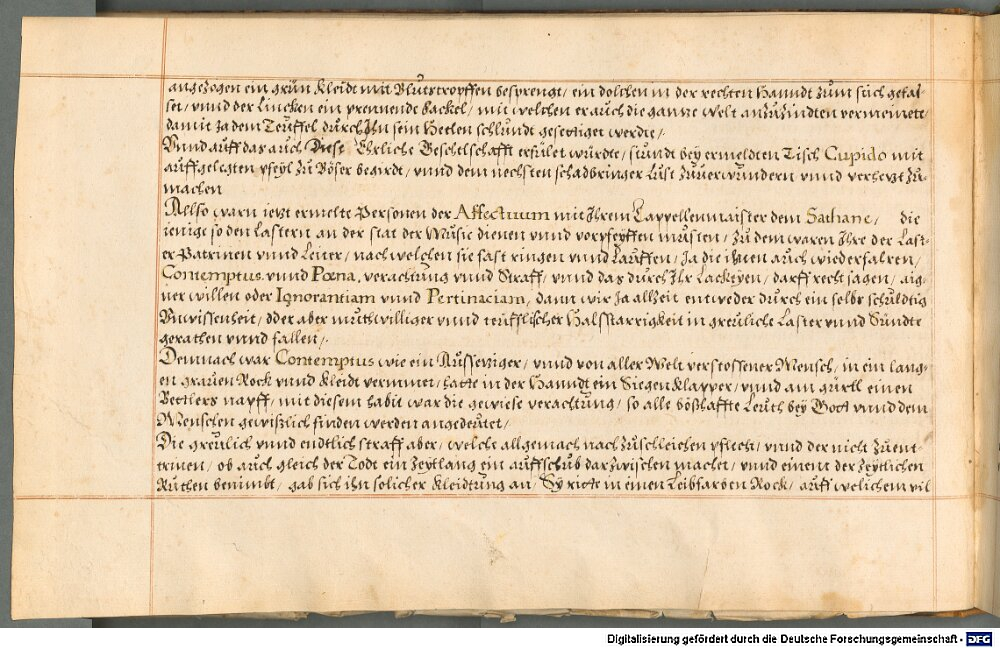 angezogen ein grün kleidt mit Bluttropffen besprengt, ein dolchen in der rechten Hanndt zum stich gefas-
set, vnnd der Lincken ein prennende fackel, mit welchen er auch die gantze Welt anzuzindten vermeinett,
damit ja dem Teüffel durch Ihn sein Hellen schlundt gesettiget werde,
Vnnd auff das auch Diese Ehrliche Geselschafft erfület würdte, stundt bey ermeldten Tisch Cupido mit
auffgelegten pfeyl zu Böser begirdt, vnnd dem nechsten schadbringer Lust zuuerwundern vnnd verhetzt zu-
machen
Allso warn ietzt ermelte Personen der Affectuum mit Ihrem Cappellenmaister dem Sathane, die
ienige so den Lastern an der stat der Music dienen vnnd vorpfeyffen musten, Zu dem waren Ihre der Last-
er Patrinen vnnd Leiter, nach welchen sie fast ringen vnnd Lauffen, Ja die ihnen auch wiederfahren,
Contemptus vnnd Pœna, verachtung vnnd Straff, vnnd das durch Ihr Lackeyen, darff recht sagen, aig-
ner willen oder Ignorantiam vnnd Pertinaciam, dann wir Ja allzeit entweder durch ein selbs schuldtig
Vnwissenheit, oder aber muthwilliger vnnd teufflischer Halsstarrigkeit in greuliche Laster vnnd Sündte
gerathen vnnd fallen,
Demnach war Contemptus wie ein Aussetziger, vnnd von aller Welt verstossener Mensch, in ein lang-
en grauen Rock vnnd kleidt vermumet, hatte in der Hanndt ein Siegen klapper, vnnd am gürtl einen
Bettlers napff, mit diesem habit war die gewiese verachtung, so alle bößhaffte Leuth bey Gott vnnd dem
Menschen gewißlich finden werden angedeutet,
Die greulich vnnd endtlich straff aber, welche allgemach nach zuschleichen pflegt, vnnd der nicht zuent-
trinen, ob auch gleich der Todt ein Zeytlang ein auffschub darzwischen machet, vnnd einem der Zeytlichen
Ruthen benimbt, gab sich ihn solicher kleidtung an, Sy ritte in einen Leibfarben Rock, auff welichem vil
Digitalisierung gefördert durch die Deutsche Forschungsgemeinschaft - DFG